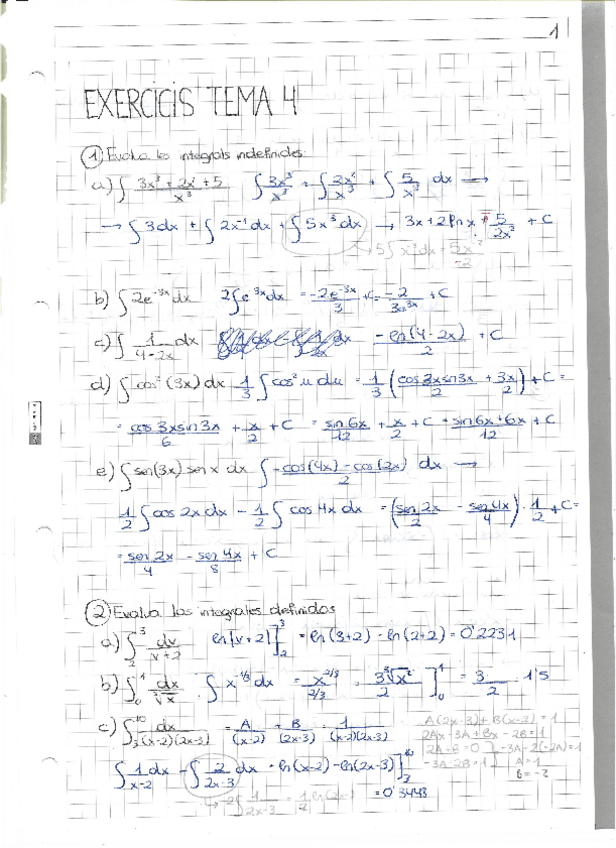 1
EXERCICIS TEMA 4
① Evalua les integrals indefinides:
a) ∫ (3x³ + 2x² + 5)/x³ ∫ 3x³/x³ + ∫ 2x²/x³ + ∫ 5/x³ dx →
→ ∫ 3dx + ∫ 2x⁻¹dx + ∫ 5x⁻³dx → 3x + 2lnx - 5/2x² + C
→ 5∫ x⁻³dx = 5x⁻²/-2
b) ∫ 2e⁻³ˣdx 2∫ e⁻³ˣdx = -2e⁻³ˣ/3 + C = -2/3e³ˣ + C
c) ∫ 1/(4-2x) dx -ln(4-2x)/2 + C
d) ∫ cos²(3x) dx 1/3 ∫ cos²u du = 1/3 (cos3xsin3x/2 + 3x/2) + C =
= cos3xsin3x/6 + x/2 + C = sin6x/12 + x/2 + C = sin6x+6x/12 + C
e) ∫ sen(3x) sen x dx ∫ -cos(4x) - cos(2x)/2 dx →
1/2 ∫ cos 2x dx - 1/2 ∫ cos 4x dx = (sen2x/2 - sen4x/4) · 1/2 + C =
= sen2x/4 - sen4x/8 + C
② Evalua las integrales definidas
a) ∫₂³ dx/(x+2) ln|x+2|]₂³ = ln(3+2) - ln(2+2) = 0'2231
b) ∫₀¹ dx/∛x ∫ x⁻¹/³dx = x²/³/2/3 = 3∛x²/2 ]₀¹ = 3/2 1'5
c) ∫₃¹⁰ dx/(x-2)(2x-3) = A/(x-2) + B/(2x-3) = 1/(x-2)(2x-3)
A(2x-3) + B(x-2) = 1
2Ax - 3A + Bx - 2B = 1
2A+B = 0
-3A-2B = 1
-3A-2(-2A) = 1
A = 1
B = -2
∫ 1/(x-2) dx - ∫ 2/(2x-3) dx = ln(x-2) - ln(2x-3)]₃¹⁰
→ 2∫ 1/(2x-3) = 1/2 ln(2x-3)
= 0'3448